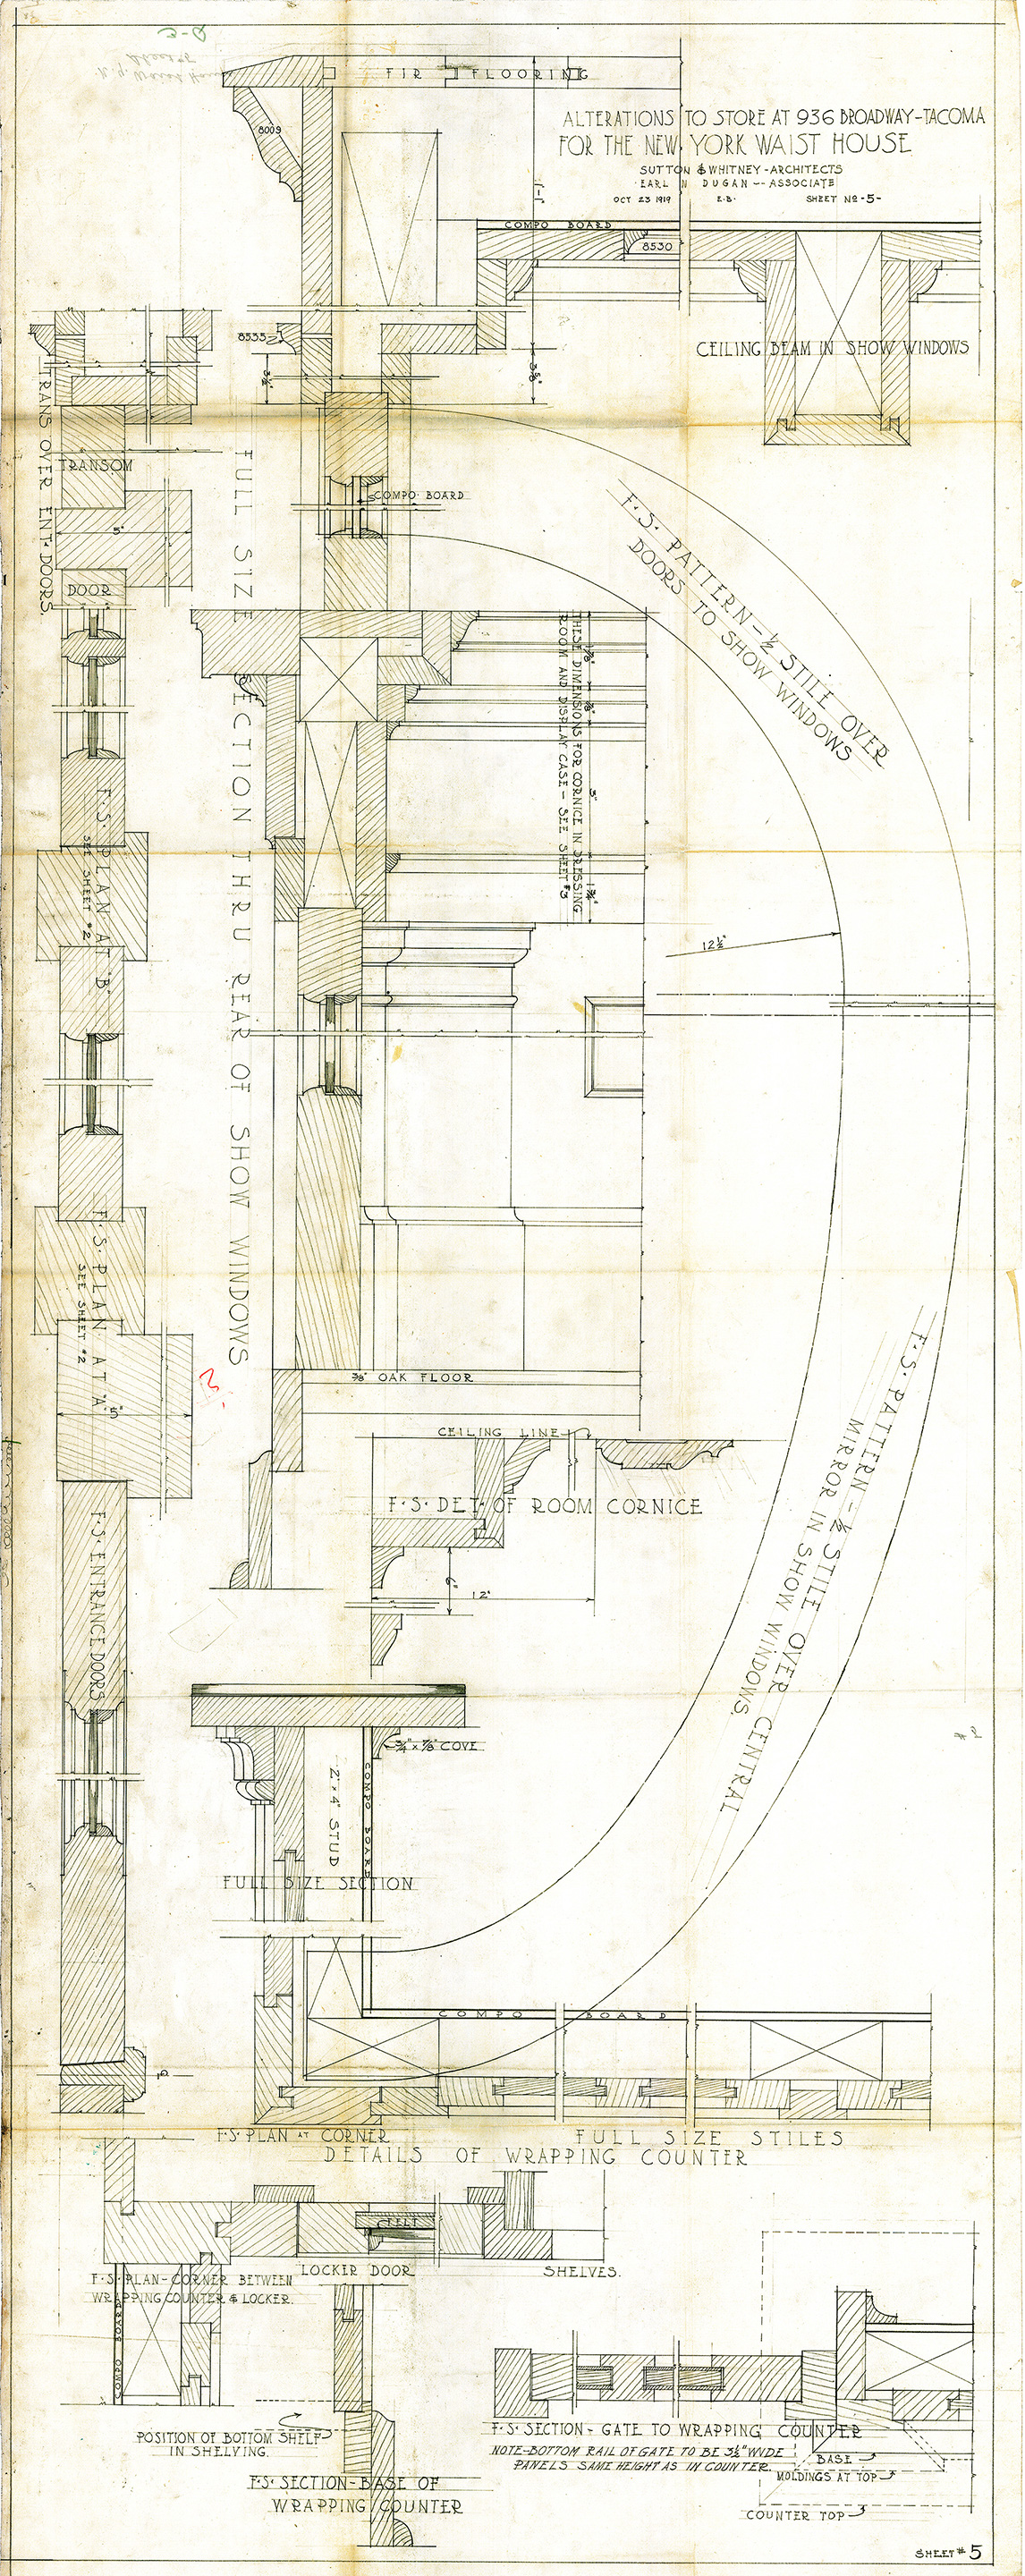 3-Q
FIR FLOORING
8009
ALTERATIONS TO STORE AT 936 BROADWAY-TACOMA
FOR THE NEW YORK WAIST HOUSE
SUTTON & WHITNEY - ARCHITECTS
EARL N DUGAN -- ASSOCIATE
OCT 23 1919 E.B. SHEET NO -5-
1'-1"
COMPO BOARD
8530
8535
3½"
3⅝"
CEILING BEAM IN SHOW WINDOWS
TRANS OVER ENT. DOORS.
TRANSOM
5"
DOOR
FULL SIZE SECTION THRU REAR OF SHOW WINDOWS
COMPO BOARD
F.S. PATTERN-½ STILE OVER
DOORS TO SHOW WINDOWS
THESE DIMENSIONS FOR CORNICE IN DRESSING
ROOM AND DISPLAY CASE - SEE SHEET #3
1⅞"
⅞"
5"
1¾"
12½"
F.S. PLAN AT "B"
SEE SHEET #2
F.S. PLAN AT "A"
SEE SHEET #2
5"
⅞" OAK FLOOR
CEILING LINE
F.S. DET. OF ROOM CORNICE
6"
12"
F.S. PATTERN-½ STILE OVER CENTRAL
MIRROR IN SHOW WINDOWS.
F.S. ENTRANCE DOORS
¾" x ⅞" COVE
2" x 4" STUD
COMPO BOARD
FULL SIZE SECTION
COMPO BOARD
F.S. PLAN AT CORNER
FULL SIZE STILES
DETAILS OF WRAPPING COUNTER
FELT
LOCKER DOOR
SHELVES.
F.S. PLAN-CORNER BETWEEN
WRAPPING COUNTER & LOCKER.
COMPO BOARD
POSITION OF BOTTOM SHELF
IN SHELVING.
F.S. SECTION-BASE OF
WRAPPING COUNTER
F.S. SECTION - GATE TO WRAPPING COUNTER
NOTE-BOTTOM RAIL OF GATE TO BE 3½" WIDE
PANELS SAME HEIGHT AS IN COUNTER.
BASE
MOLDINGS AT TOP
COUNTER TOP
SHEET # 5